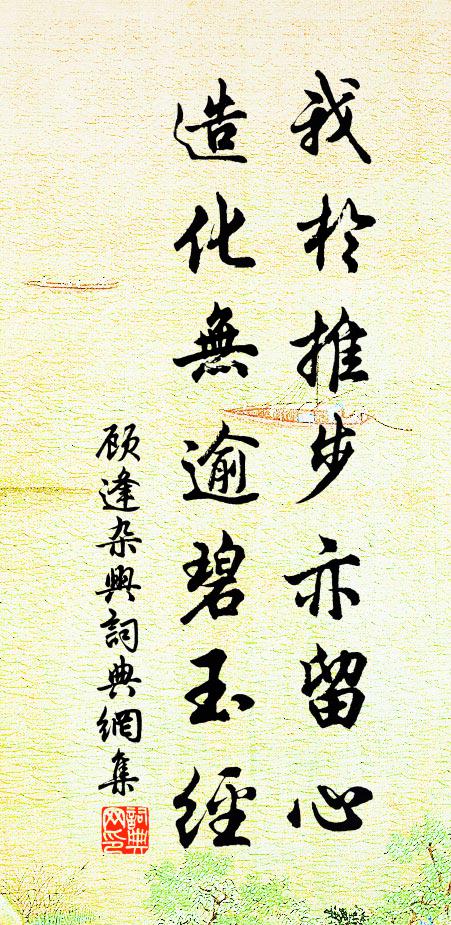 我於推步亦留心
造化無逾碧玉經
顾逢杂興詞典網集
詞典網印